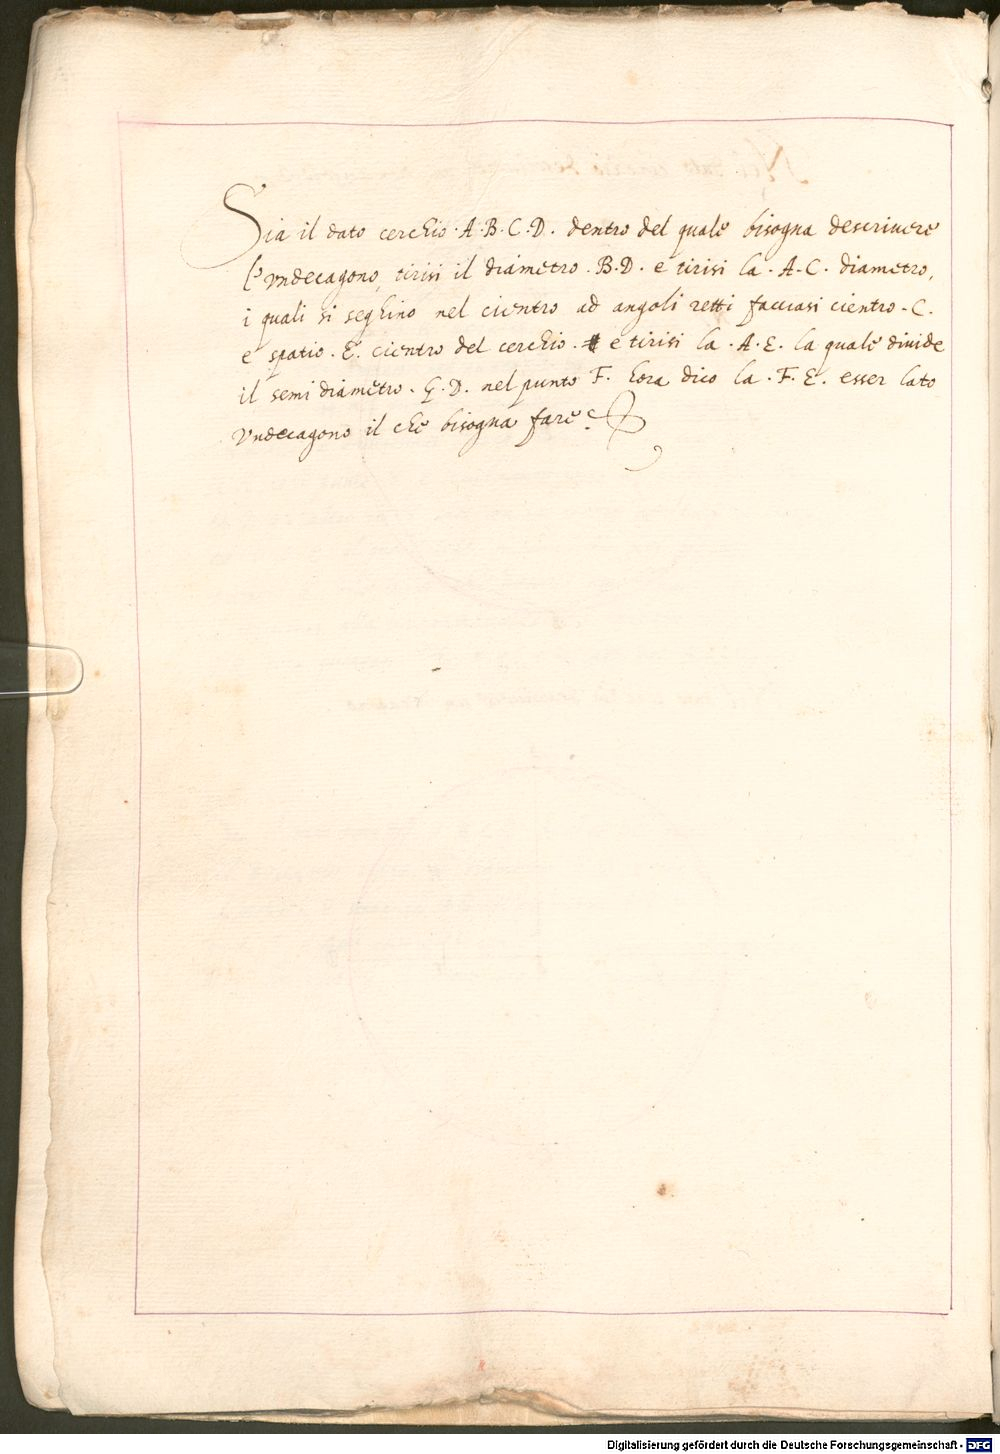 Sia il dato cerchio · A · B · C · D · dentro del quale bisogna descrivere
l'undecagono, tirisi il diámetro · B · D · e tirisi la · A · C · diametro,
i quali si seghino nel cientro ad angoli retti facciasi cientro · C ·
e spatio · E · cientro del cerchio · e tirisi la · A · E · la quale divide
il semi diámetro · G · D · nel punto F · hora dico la · F · E · esser lato
Vndecagono il che bisogna fare
Digitalisierung gefördert durch die Deutsche Forschungsgemeinschaft - DFG